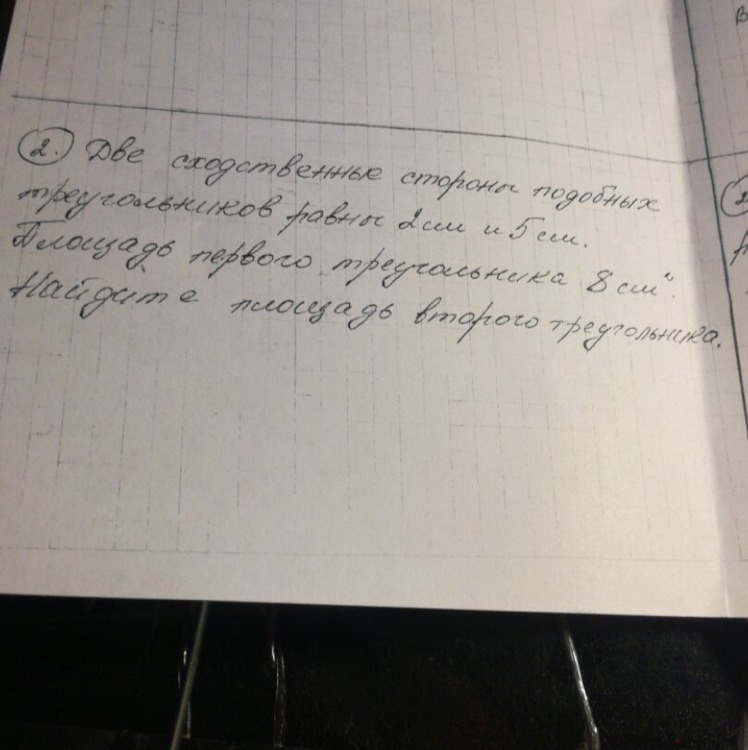 2. Две сходственные стороны подобных
треугольников равны 2см и 5см.
Площадь первого треугольника 8 см².
Найдите площадь второго треугольника.